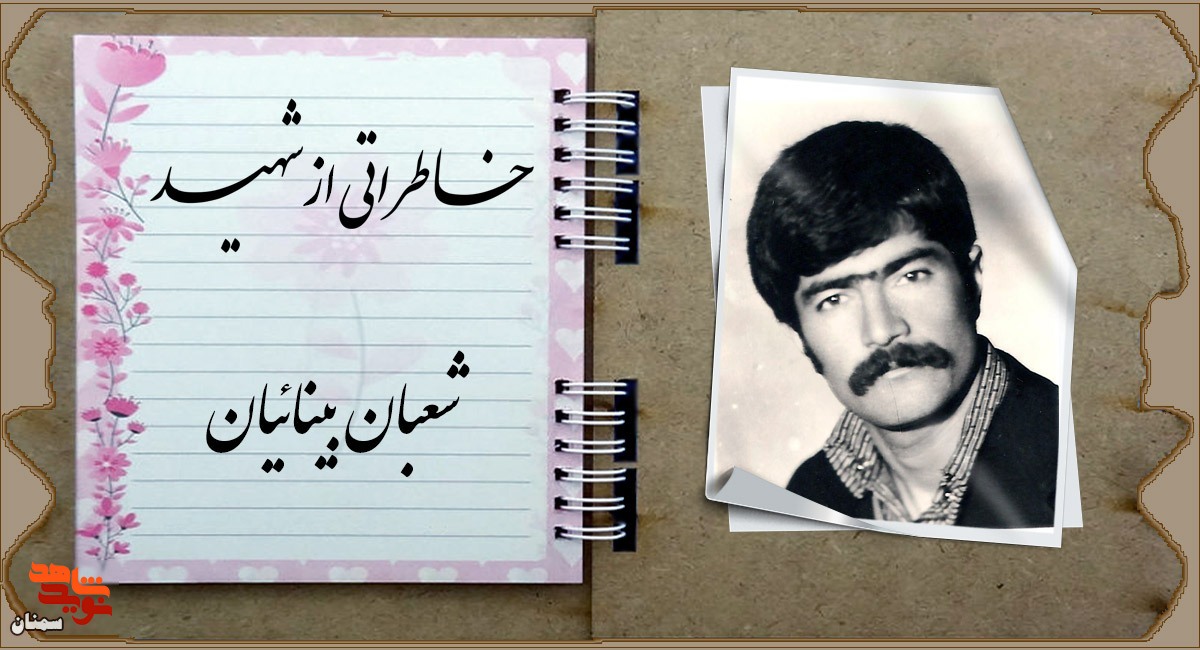 خاطراتی از شهید
شعبان بینائیان
نوید شاهد
سمنان